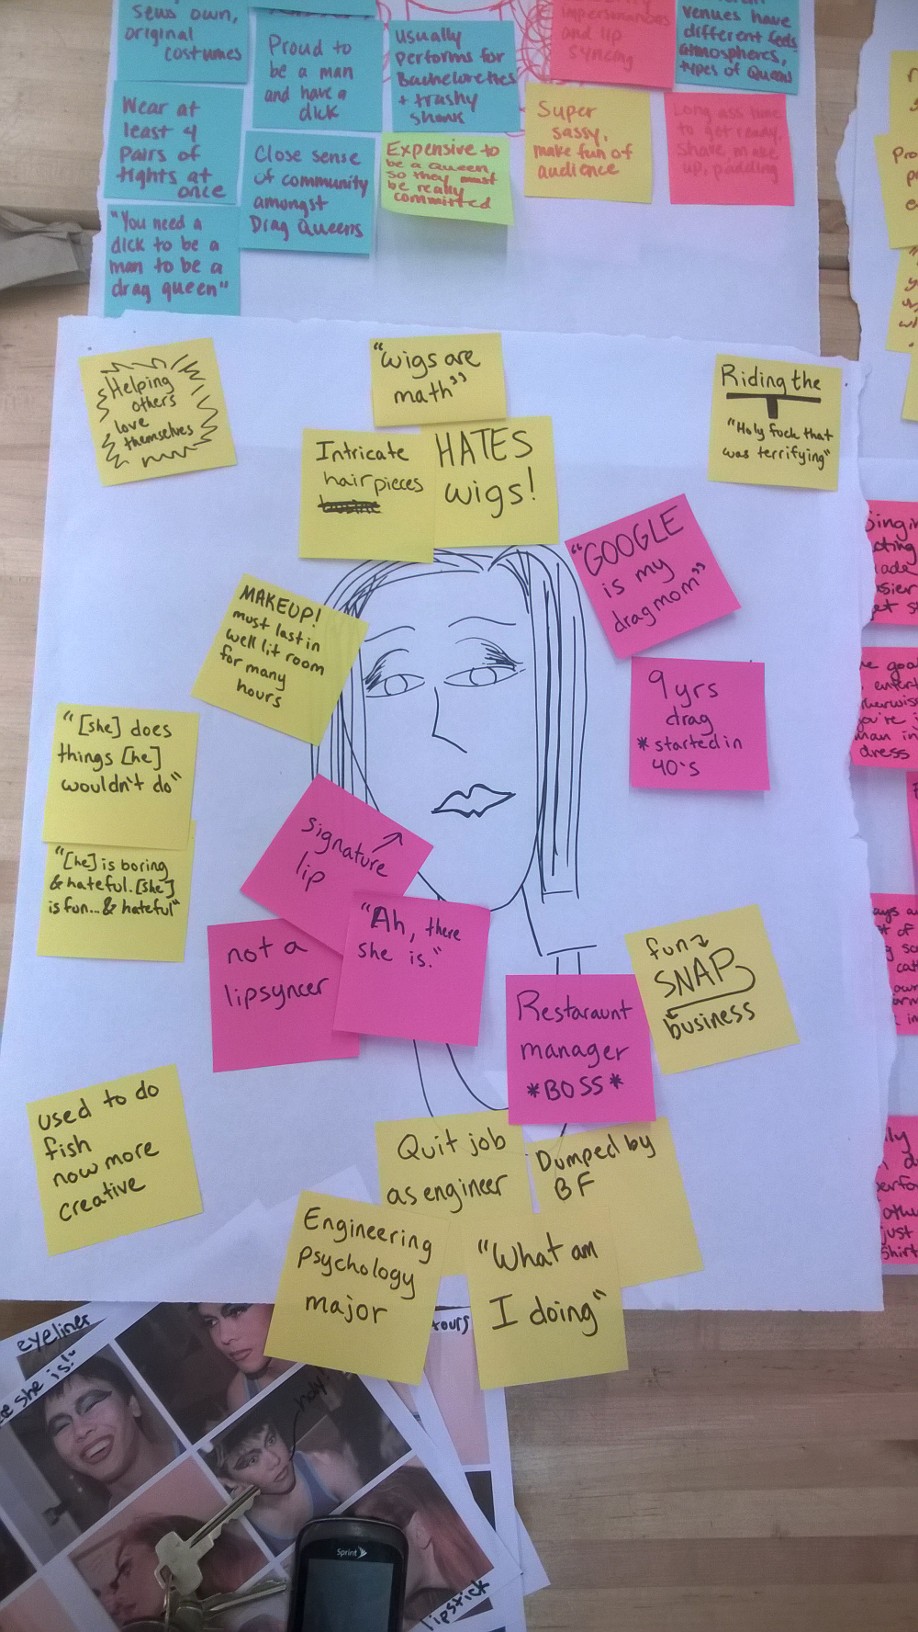 sews own,
original
costumes
Proud to
be a man
and have a
dick
usually
performs for
Bachelorettes
+ trashy
shows
and lip
syncing
venues have
different feels
atmospheres,
types of Queens
Wear at
least 4
pairs of
tights at
once
Close sense
of community
amongst
Drag Queens
Expensive to
be a queen
so they must
be really
committed
Super
sassy,
make fun of
audience
Long ass time
to get ready,
shave, make
up, padding
"You need a
dick to be a
man to be a
drag queen"
Helping
others
love
themselves
"wigs are
math"
Riding the
T
"Holy fuck that
was terrifying"
Intricate
hairpieces
HATES
wigs!
"GOOGLE
is my
dragmom"
MAKEUP!
must last in
well lit room
for many
hours
9 yrs
drag
* started in
40's
"[she] does
things [he]
wouldn't do"
"[he] is boring
& hateful. [she]
is fun... & hateful"
signature
lip
"Ah, there
she is."
not a
lipsyncer
Restaraunt
manager
*BOSS*
fun
SNAP
business
used to do
fish
now more
creative
Quit job
as engineer
Dumped by
BF
Engineering
psychology
major
"What am
I doing"
eyeliner
she is!"
tours
lipstick
Sprint